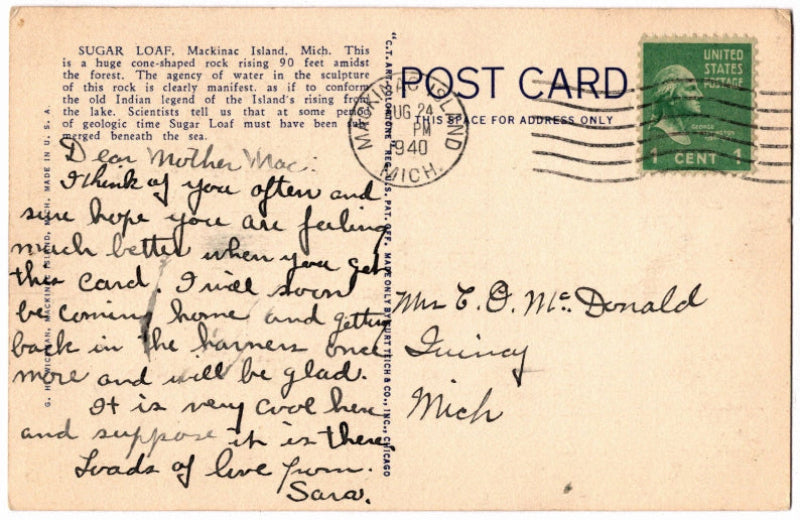 SUGAR LOAF, Mackinac Island, Mich. This
is a huge cone-shaped rock rising 90 feet amidst
the forest. The agency of water in the sculpture
of this rock is clearly manifest. as if to conform
the old Indian legend of the Island's rising from
the lake. Scientists tell us that at some period
of geologic time Sugar Loaf must have been
merged beneath the sea.
Dear Mother Mac:
I think of you often and
sure hope you are feeling
much better when you get
this card. I will soon
be coming home and getting
back in the harness once
more and will be glad.
It is very cool here
and suppose it is there
Loads of love from.
Sara.
MACKINAC ISLAND, MICH. MADE IN U. S. A.
"C.T. ART-COLORTONE" REG. U.S. PAT. OFF. MADE ONLY BY CURT TEICH & CO., INC., CHICAGO
POST CARD
THIS SPACE FOR ADDRESS ONLY
MACKINAC ISLAND
AUG 24
PM
1940
MICH.
UNITED
STATES
POSTAGE
GEORGE
WASHINGTON
1 CENT 1
Mrs C. D. Mc. Donald
Quincy
Mich